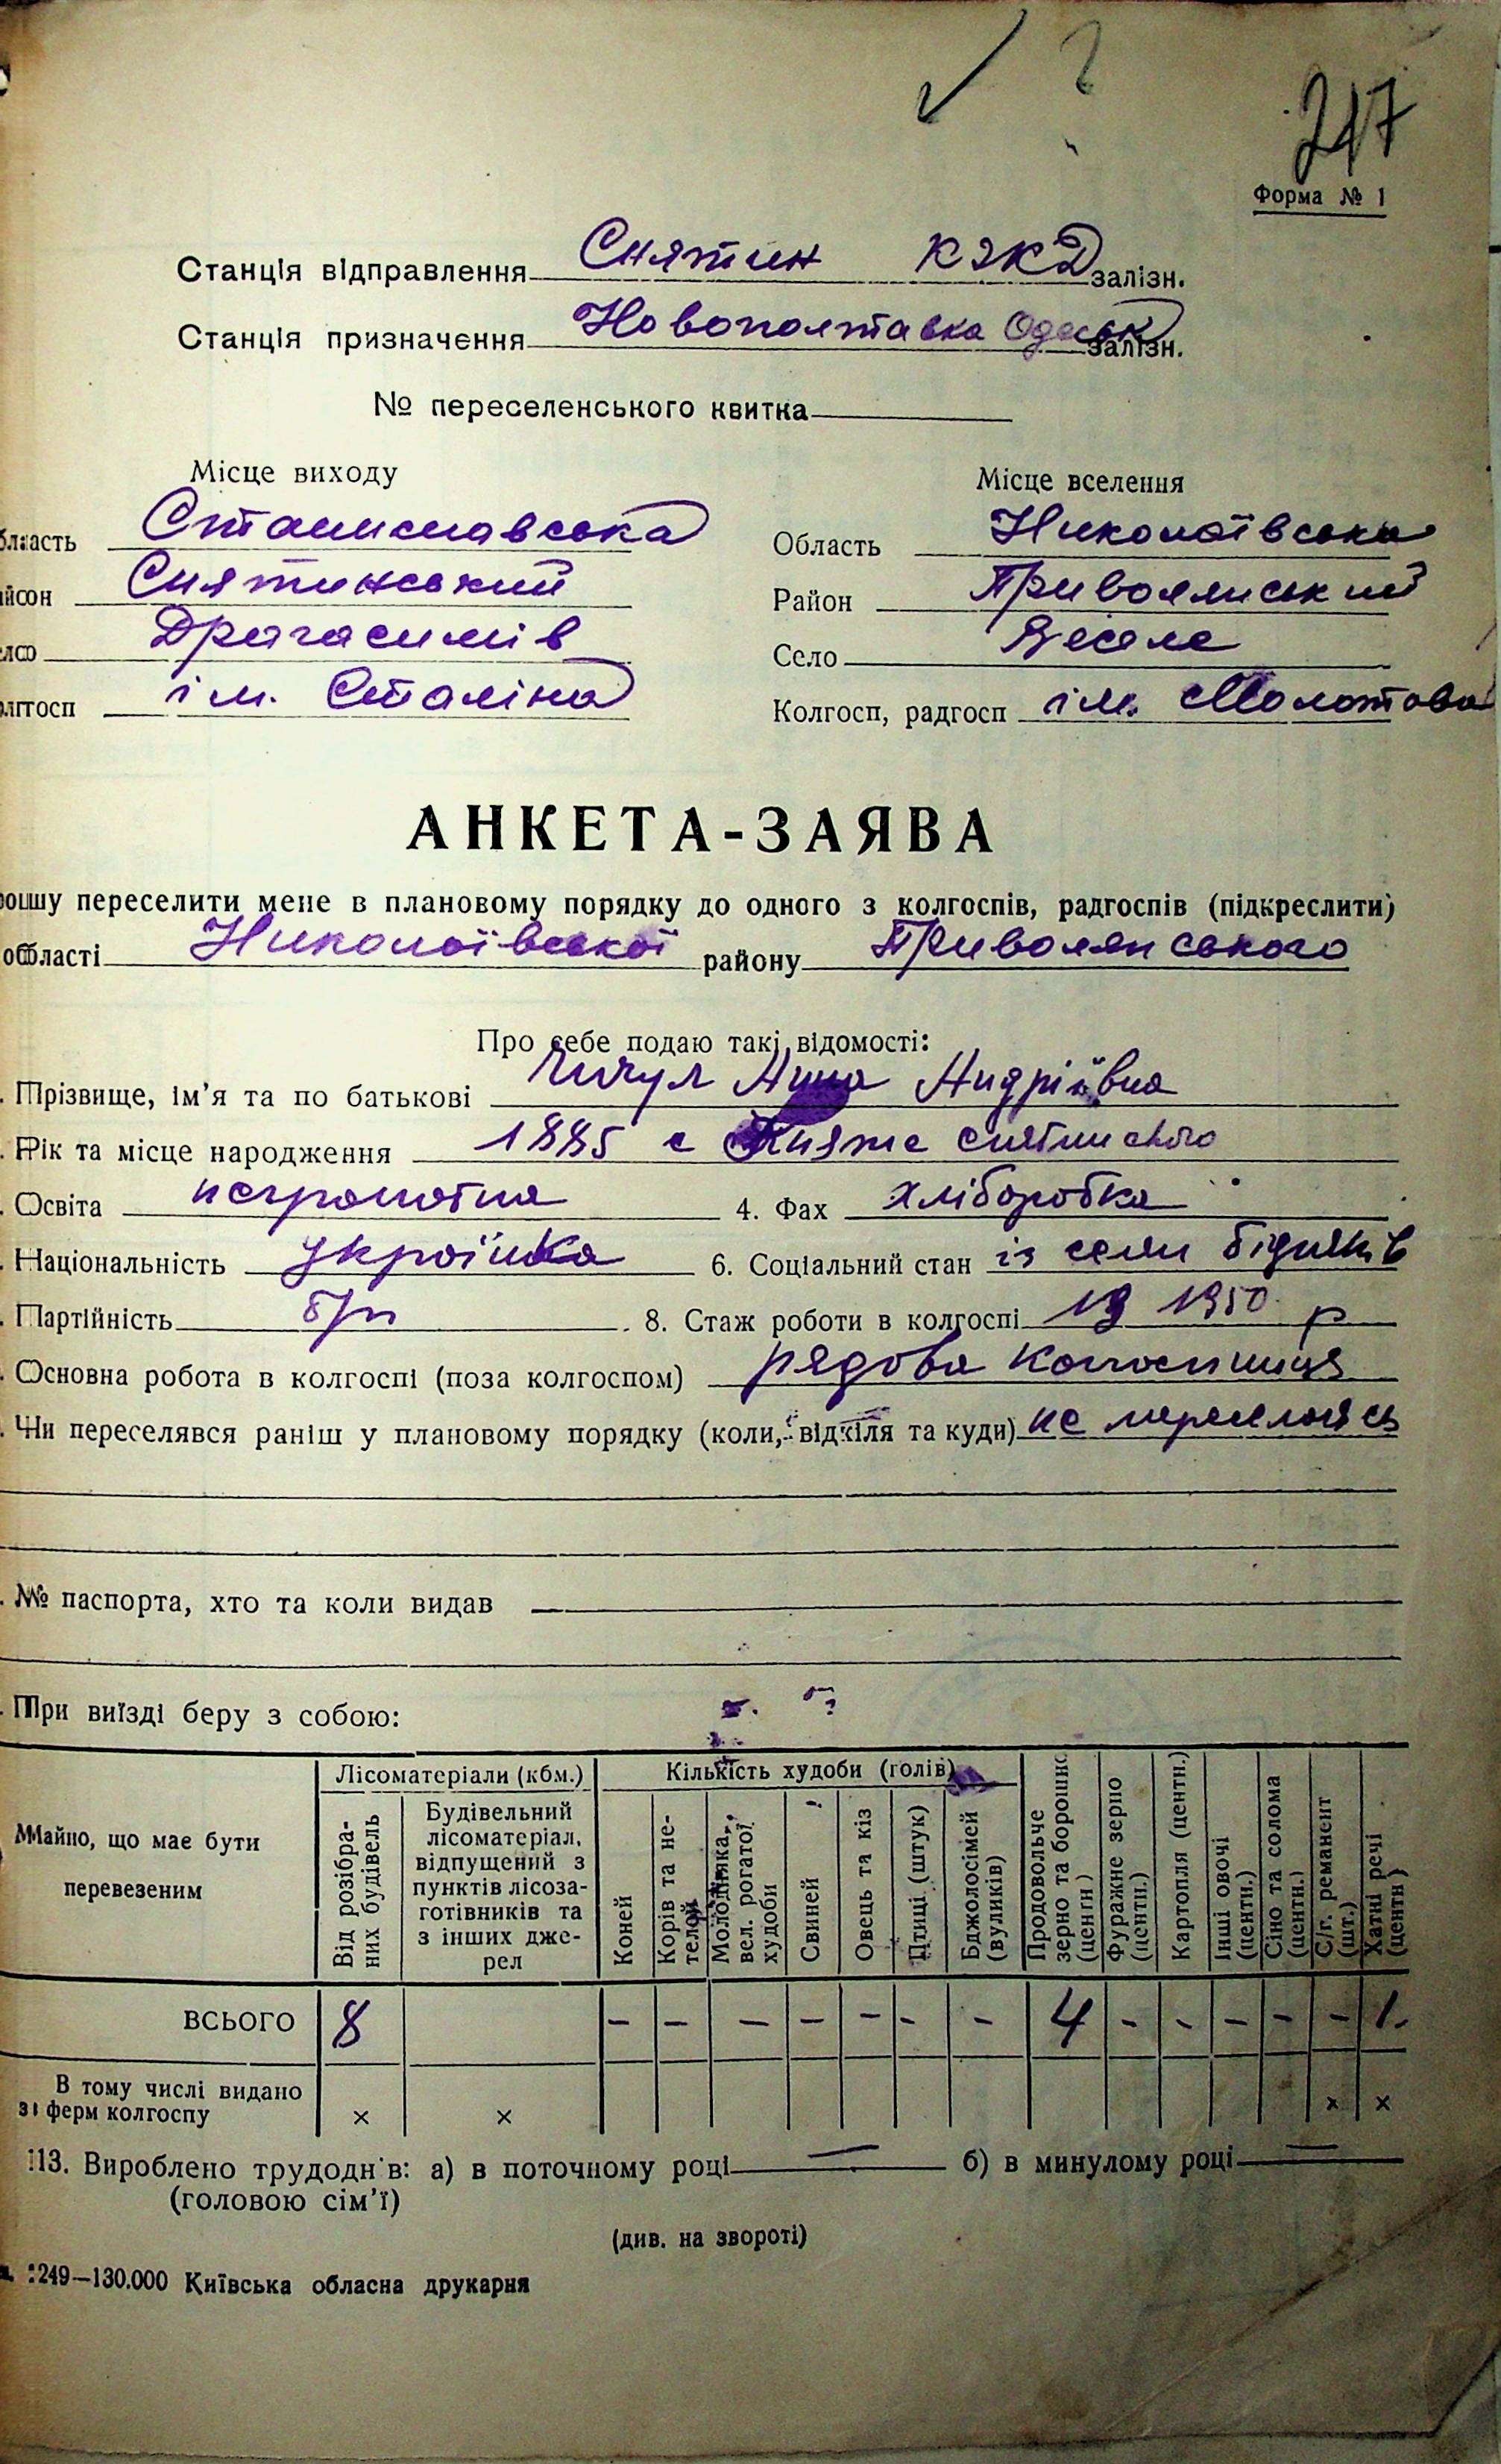 247
Форма № 1
Станція відправлення Снятин КЗКД залізн.
Станція призначення Новополтавка Одеськ залізн.
№ переселенського квитка
Місце виходу
Місце вселення
область Станиславська
Область Николаївська
район Снятинський
Район Привольянський
село Драгасимів
Село Веселе
колгосп ім. Сталіна
Колгосп, радгосп ім. Молотова
АНКЕТА-ЗАЯВА
Прошу переселити мене в плановому порядку до одного з колгоспів, радгоспів (підкреслити)
області Николаївської району Привольянського
Про себе подаю такі відомості:
Прізвище, ім'я та по батькові Чичул Анна Андріївна
Рік та місце народження 1885 с Княже снятинського
Освіта неграмотна 4. Фах хліборобка
Національність Українка 6. Соціальний стан із селян бідняків
Партійність б/п 8. Стаж роботи в колгоспі із 1950 р
Основна робота в колгоспі (поза колгоспом) рядова колгоспниця
Чи переселявся раніш у плановому порядку (коли, відкіля та куди) не переселялась
№ паспорта, хто та коли видав
При виїзді беру з собою:
Майно, що має бути перевезеним
Лісоматеріали (кбм.)
Кількість худоби (голів)
Від розібраних будівель
Будівельний лісоматеріал, відпущений з пунктів лісозаготівників та з інших джерел
Коней
Корів та нетелой
Молодняка вел. рогатої худоби
Свиней
Овець та кіз
Птиці (штук)
Бджолосімей (вуликів)
Продовольче зерно та борошно (центн)
Фуражне зерно (центн.)
Картопля (центн.)
Інші овочі (центн.)
Сіно та солома (центн.)
С/г. реманент (шт.)
Хатні речі (центн)
ВСЬОГО 8 – – – – – – – 4 – – – – – 1.
В тому числі видано з ферм колгоспу × × × ×
13. Вироблено трудоднів: а) в поточному році — б) в минулому році —
(головою сім'ї)
(див. на звороті)
1249—130.000 Київська обласна друкарня